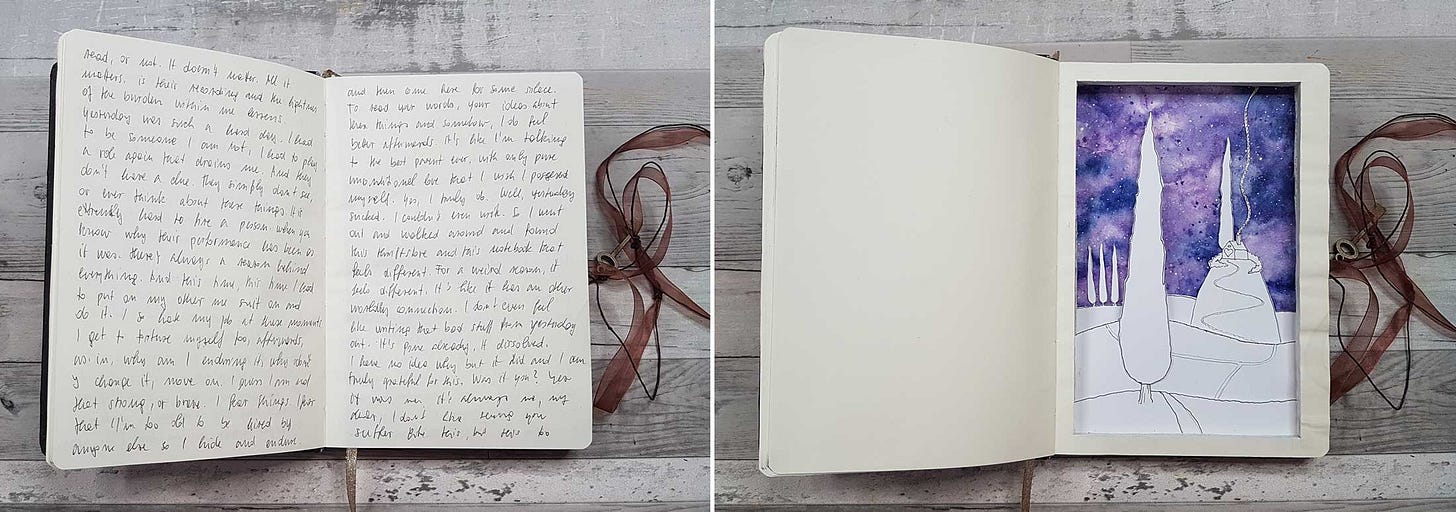 read, or not. It doesn't matter. All it
matters, is their recording and the lightness
of the burden within me lessens.
Yesterday was such a hard day. I had
to be someone I am not, I had to play
a role again that drains me. And they
don't have a clue. They simply don't see,
or ever think about these things. It is
extremely hard to fire a person when you
know why their performance has been as
it was. There's always a reason behind
everything. And this time, this time I had
to put on my other me suit on and
do it. I so hate my job at these moments
I get to torture myself too, afterwards,
as in, why am I enduring it, why don't
I change it, move on. I guess I'm not
that strong, or brave. I fear things. I fear
that I'm too old to be hired by
anyone else so I hide and endure.
and then come here for some solace.
To read your words, your ideas about
these things and somehow, I do feel
better afterwards. It's like I'm talking
to the best parent ever, with only pure
love that I wish I possessed
myself. Yes, I truly do. Well, yesterday
sucked. I couldn't even work. So I went
out and walked around and found
this thriftstore and this notebook that
feels different. For a weird reason, it
feels different. It's like it has an other
worldly connection. I don't even feel
like writing that bad stuff from yesterday
out. It's gone already, it dissolved.
I have no idea why but it did and I am
truly grateful for this. Was it you? Yes
it was me. It's always me, my
dear, I don't like seeing you
suffer like this, but this too